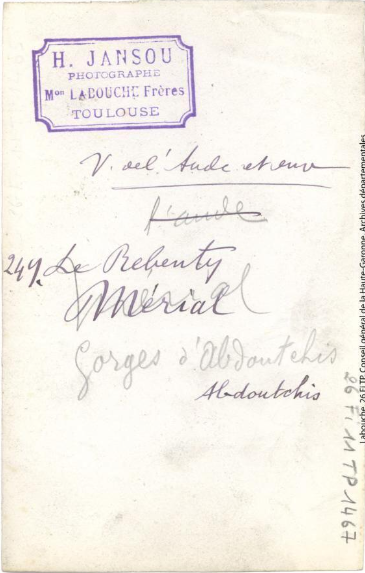 H. JANSOU
PHOTOGRAPHE
Mᵒⁿ LABOUCHE Frères
TOULOUSE
V. de l'Aude et env
l'aude
247. Le Rebenty
Mérial
Gorges d'Abdoutchis
Abdoutchis
26 Fi 11 TP 1467
Labouche, 26 FI TP, Conseil général de la Haute-Garonne, Archives départementales